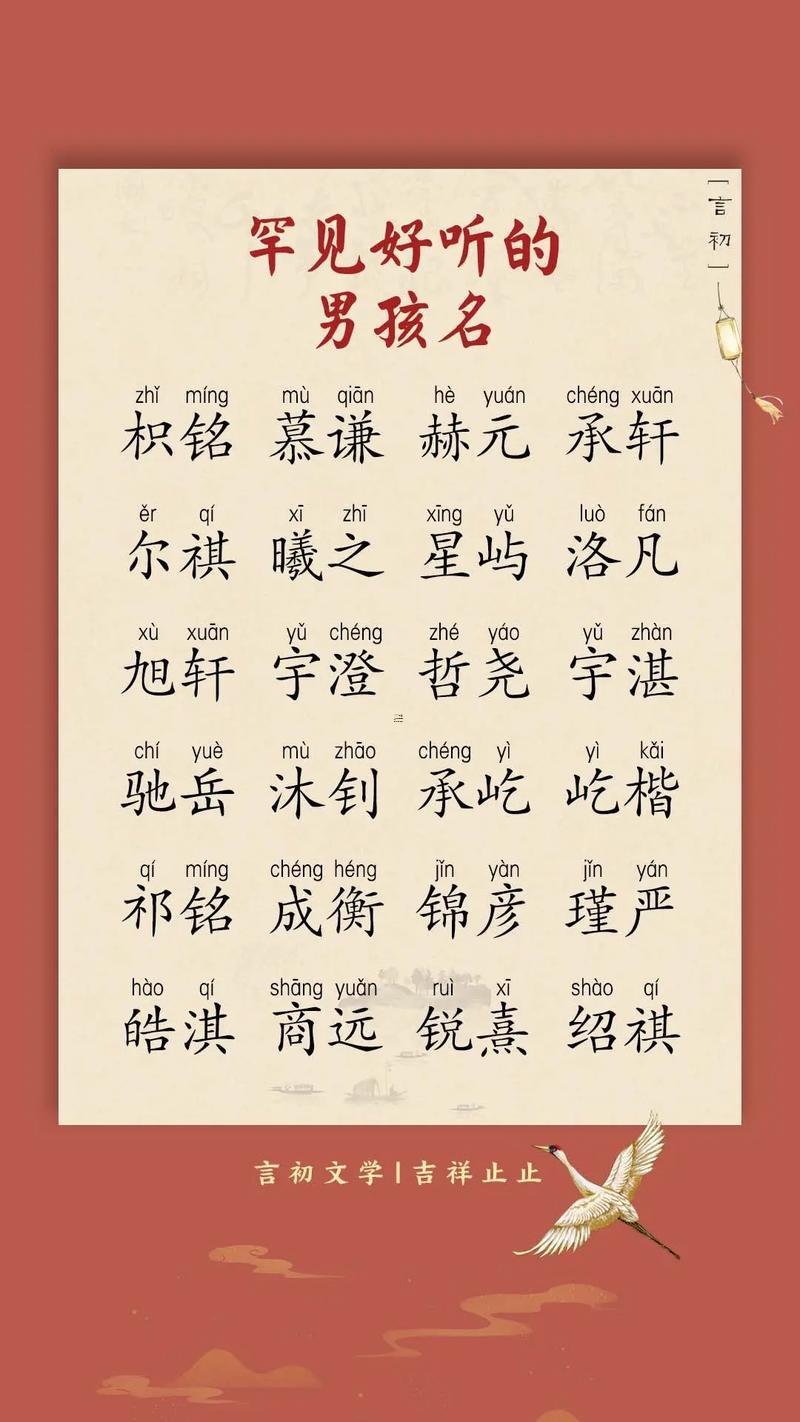 [言初]
罕见好听的
男孩名
zhǐ míng mù qiān hè yuán chéng xuān
枳铭 慕谦 赫元 承轩
ěr qí xī zhī xīng yǔ luò fán
尔祺 曦之 星屿 洛凡
xù xuān yǔ chéng zhé yáo yǔ zhàn
旭轩 宇澄 哲尧 宇湛
chí yuè mù zhāo chéng yì yì kǎi
驰岳 沐钊 承屹 屹楷
qí míng chéng héng jǐn yàn jǐn yán
祁铭 成衡 锦彦 瑾严
hào qí shāng yuǎn ruì xī shào qí
皓淇 商远 锐熹 绍祺
言初文学|吉祥止止